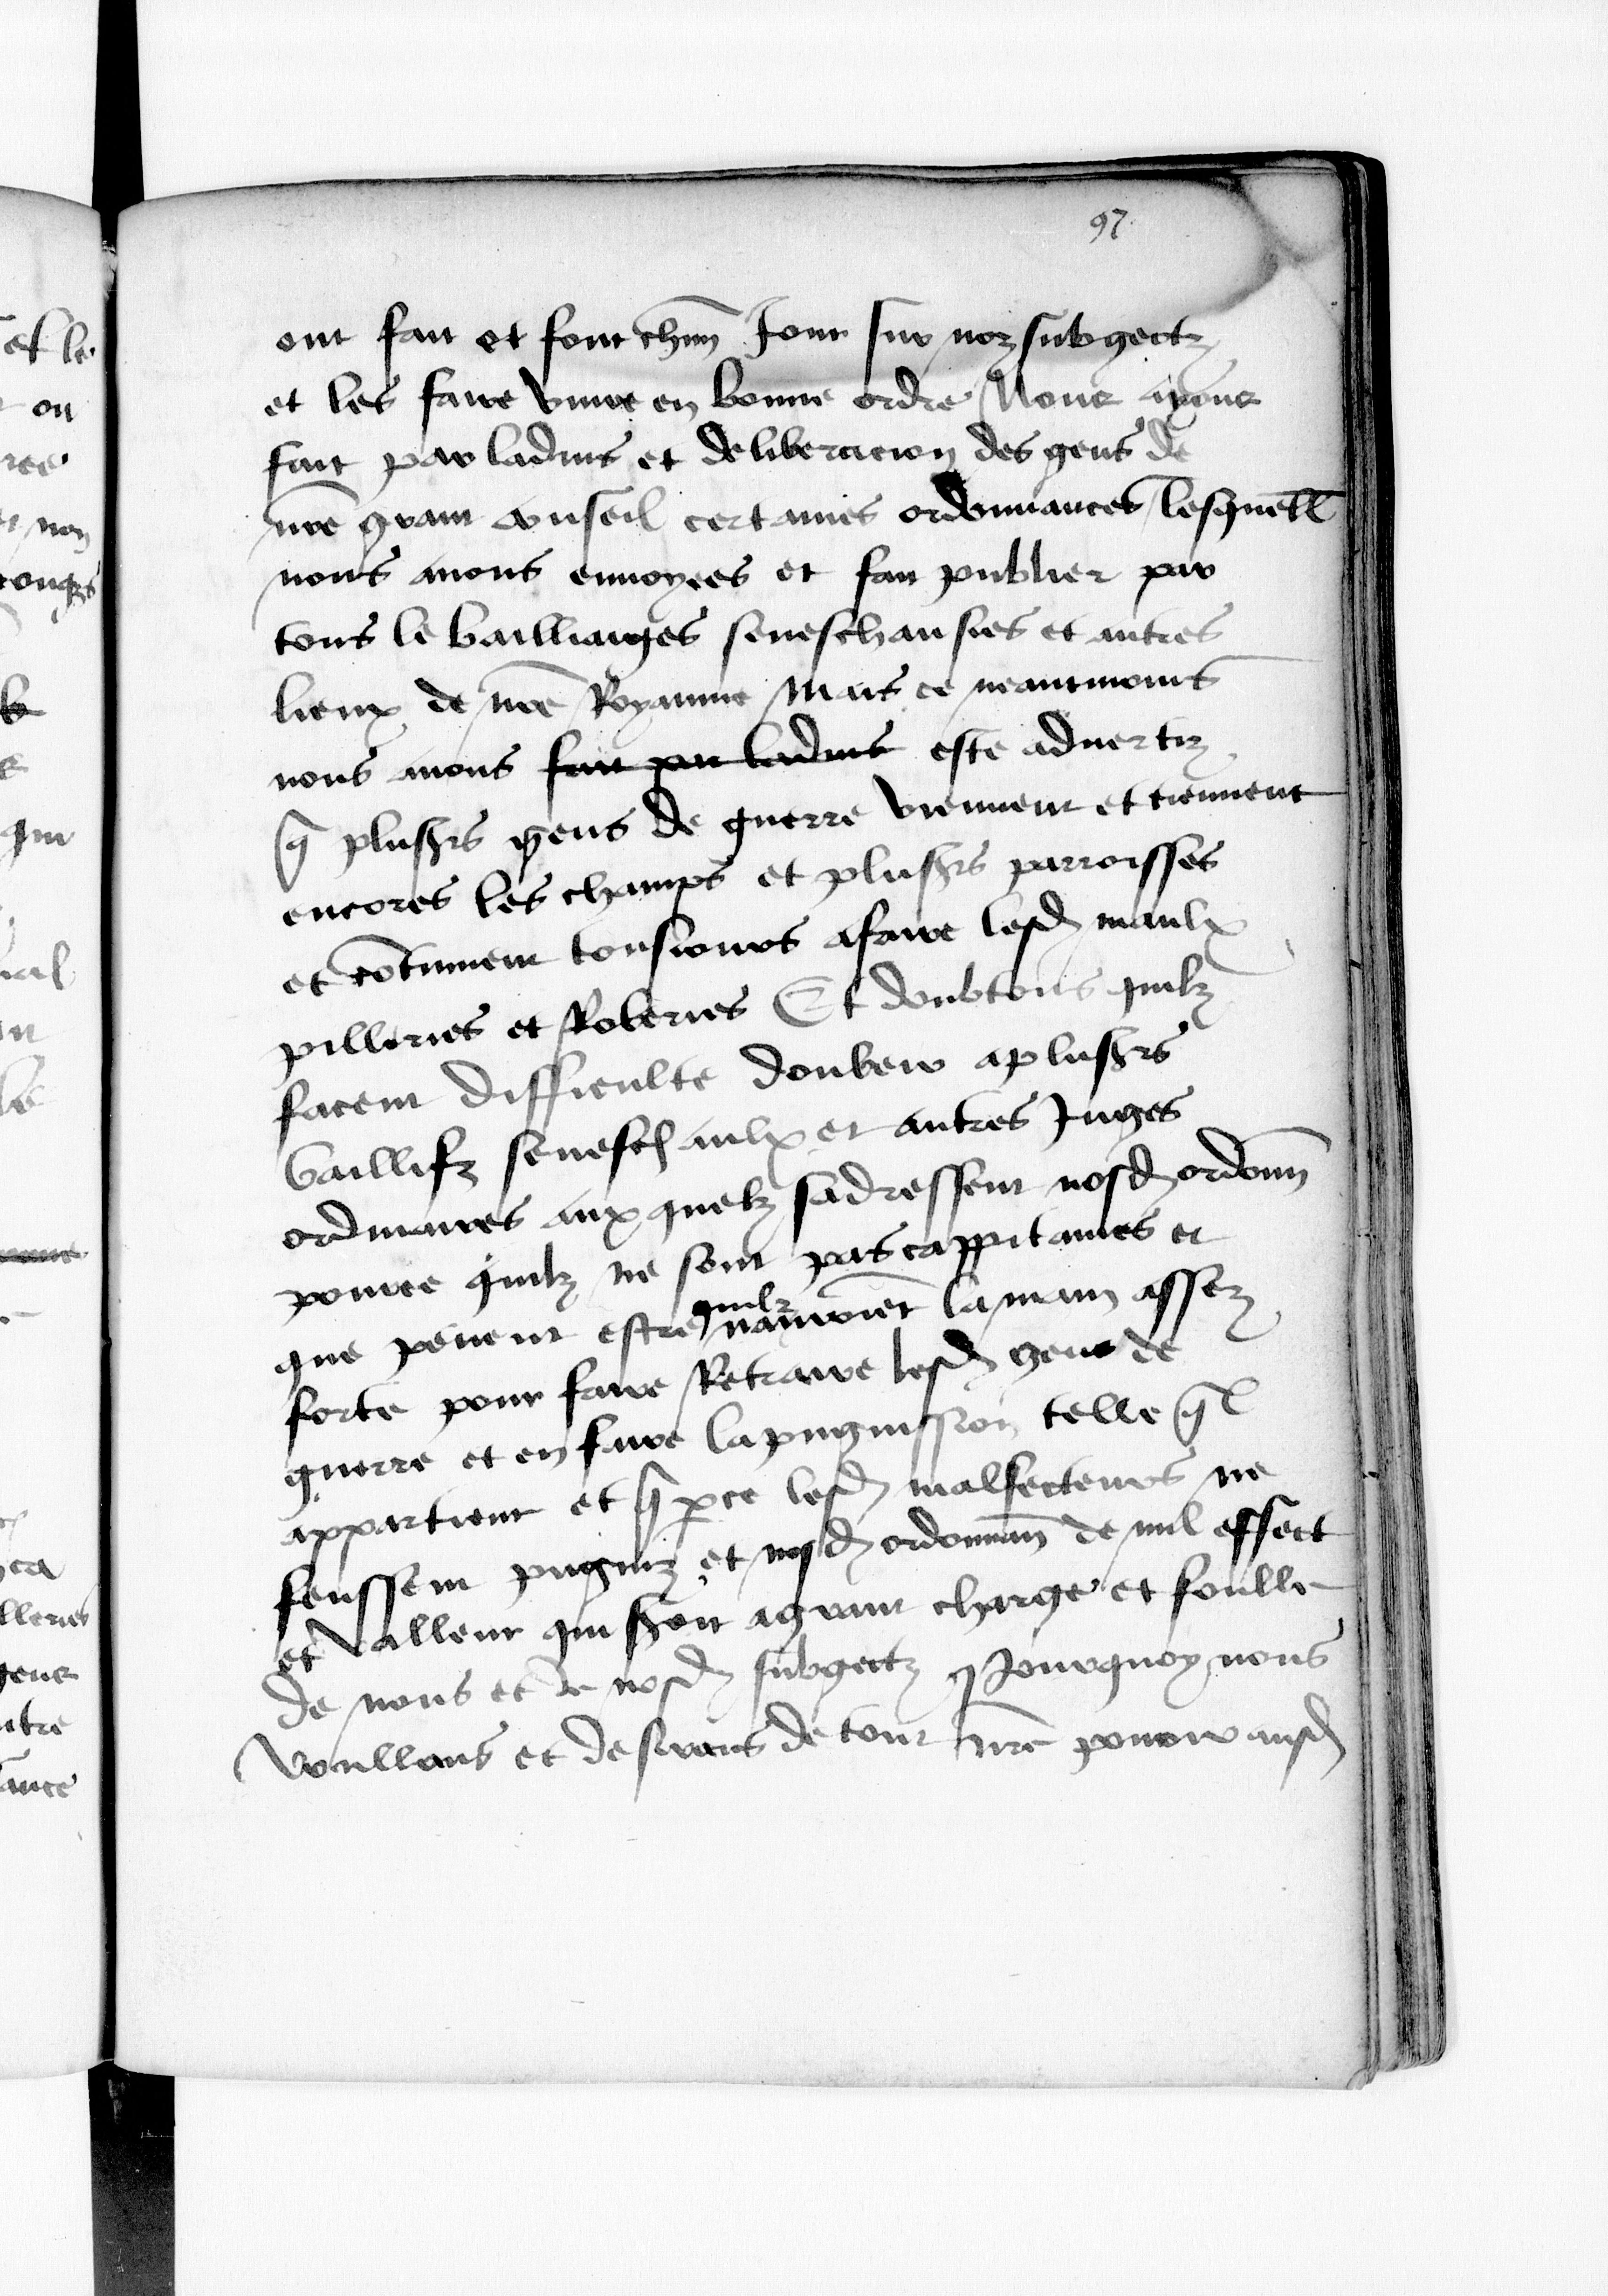 97
ont fait et font chũn Jour sur noz subgectz
et les faire vivre en bonne ordre Nous ayons
fait par ladvis et deliberacion des gens de
nrẽ grant conseil certaines ordonnances lesquelл̃
nous avons envoyees et fait publier par
tous le bailliaiges seneschausies et autres
lieux de nrẽ Royaume Mais ce neantmoins
nous avons fait par ladvis este advertiz
q̃ plusrs̃ gens de guerre viennent et tiennent
encores les champs et plusrs̃ parroisses
et cõtinuent tousiours a faire lesd̃ maulx
pilleries et Roberies Et doubtons quilz
facent difficulte dobeir a plusrs̃
baillifz senesch̃aulx et autres Juges
ordinaires aux quelz sadressent nosd̃ ordonñ
pource quilz ne sont pas cappitaines et
que pevent estre quilz nauroiẽt la main assez
forte pour faire Retraire lesd̃ gens de
guerre et en faire la pugnission telle q̃l
appartient et q̃ p̱ ce lesd̃ malfecteurs ne
feussent pugniz et nosd̃ ordonnañ de nul effect
et valleur qui seroit a grant charge et foulle
de nous et de nosd̃ subgectz Pourquoy nous
voullans et desirans de tout nrẽ povoir ausd̃